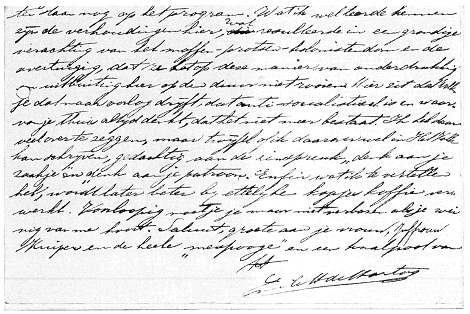 ten staan nog op het program. Wat ik wel leerde kennen
zijn de verhoudingen hier, wat resulteerde in een grondige
verachting van het moffen-protten-kolonistendom en de
overtuiging, dat ze het op deze manier van onderdrukking
en uitbuiting hier op den duur niet rooien. Hier zit dat
je dat naar oorlog drijft dat anti socialistisch is en waar-
van je thuis altijd denkt, dat het niet meer bestaat. Ik heb daar
veel over te zeggen, maar twijfel of ik daarover wel in Het Volk
kan schrijven, gedachtig aan de zinspreuk, denk aan je
zaakje en denk aan je patroon. Enfin wat ik te vertellen
heb, wordt later beter bij ettelijke kopjes koffie ver-
werkt. Voorloopig moet je je maar niet verbazen als je wei-
nig van me hoort. Saluut, groete aan je vrouw, Juffrouw
Kruiper en de heele "mespooge" en een knalpoot van